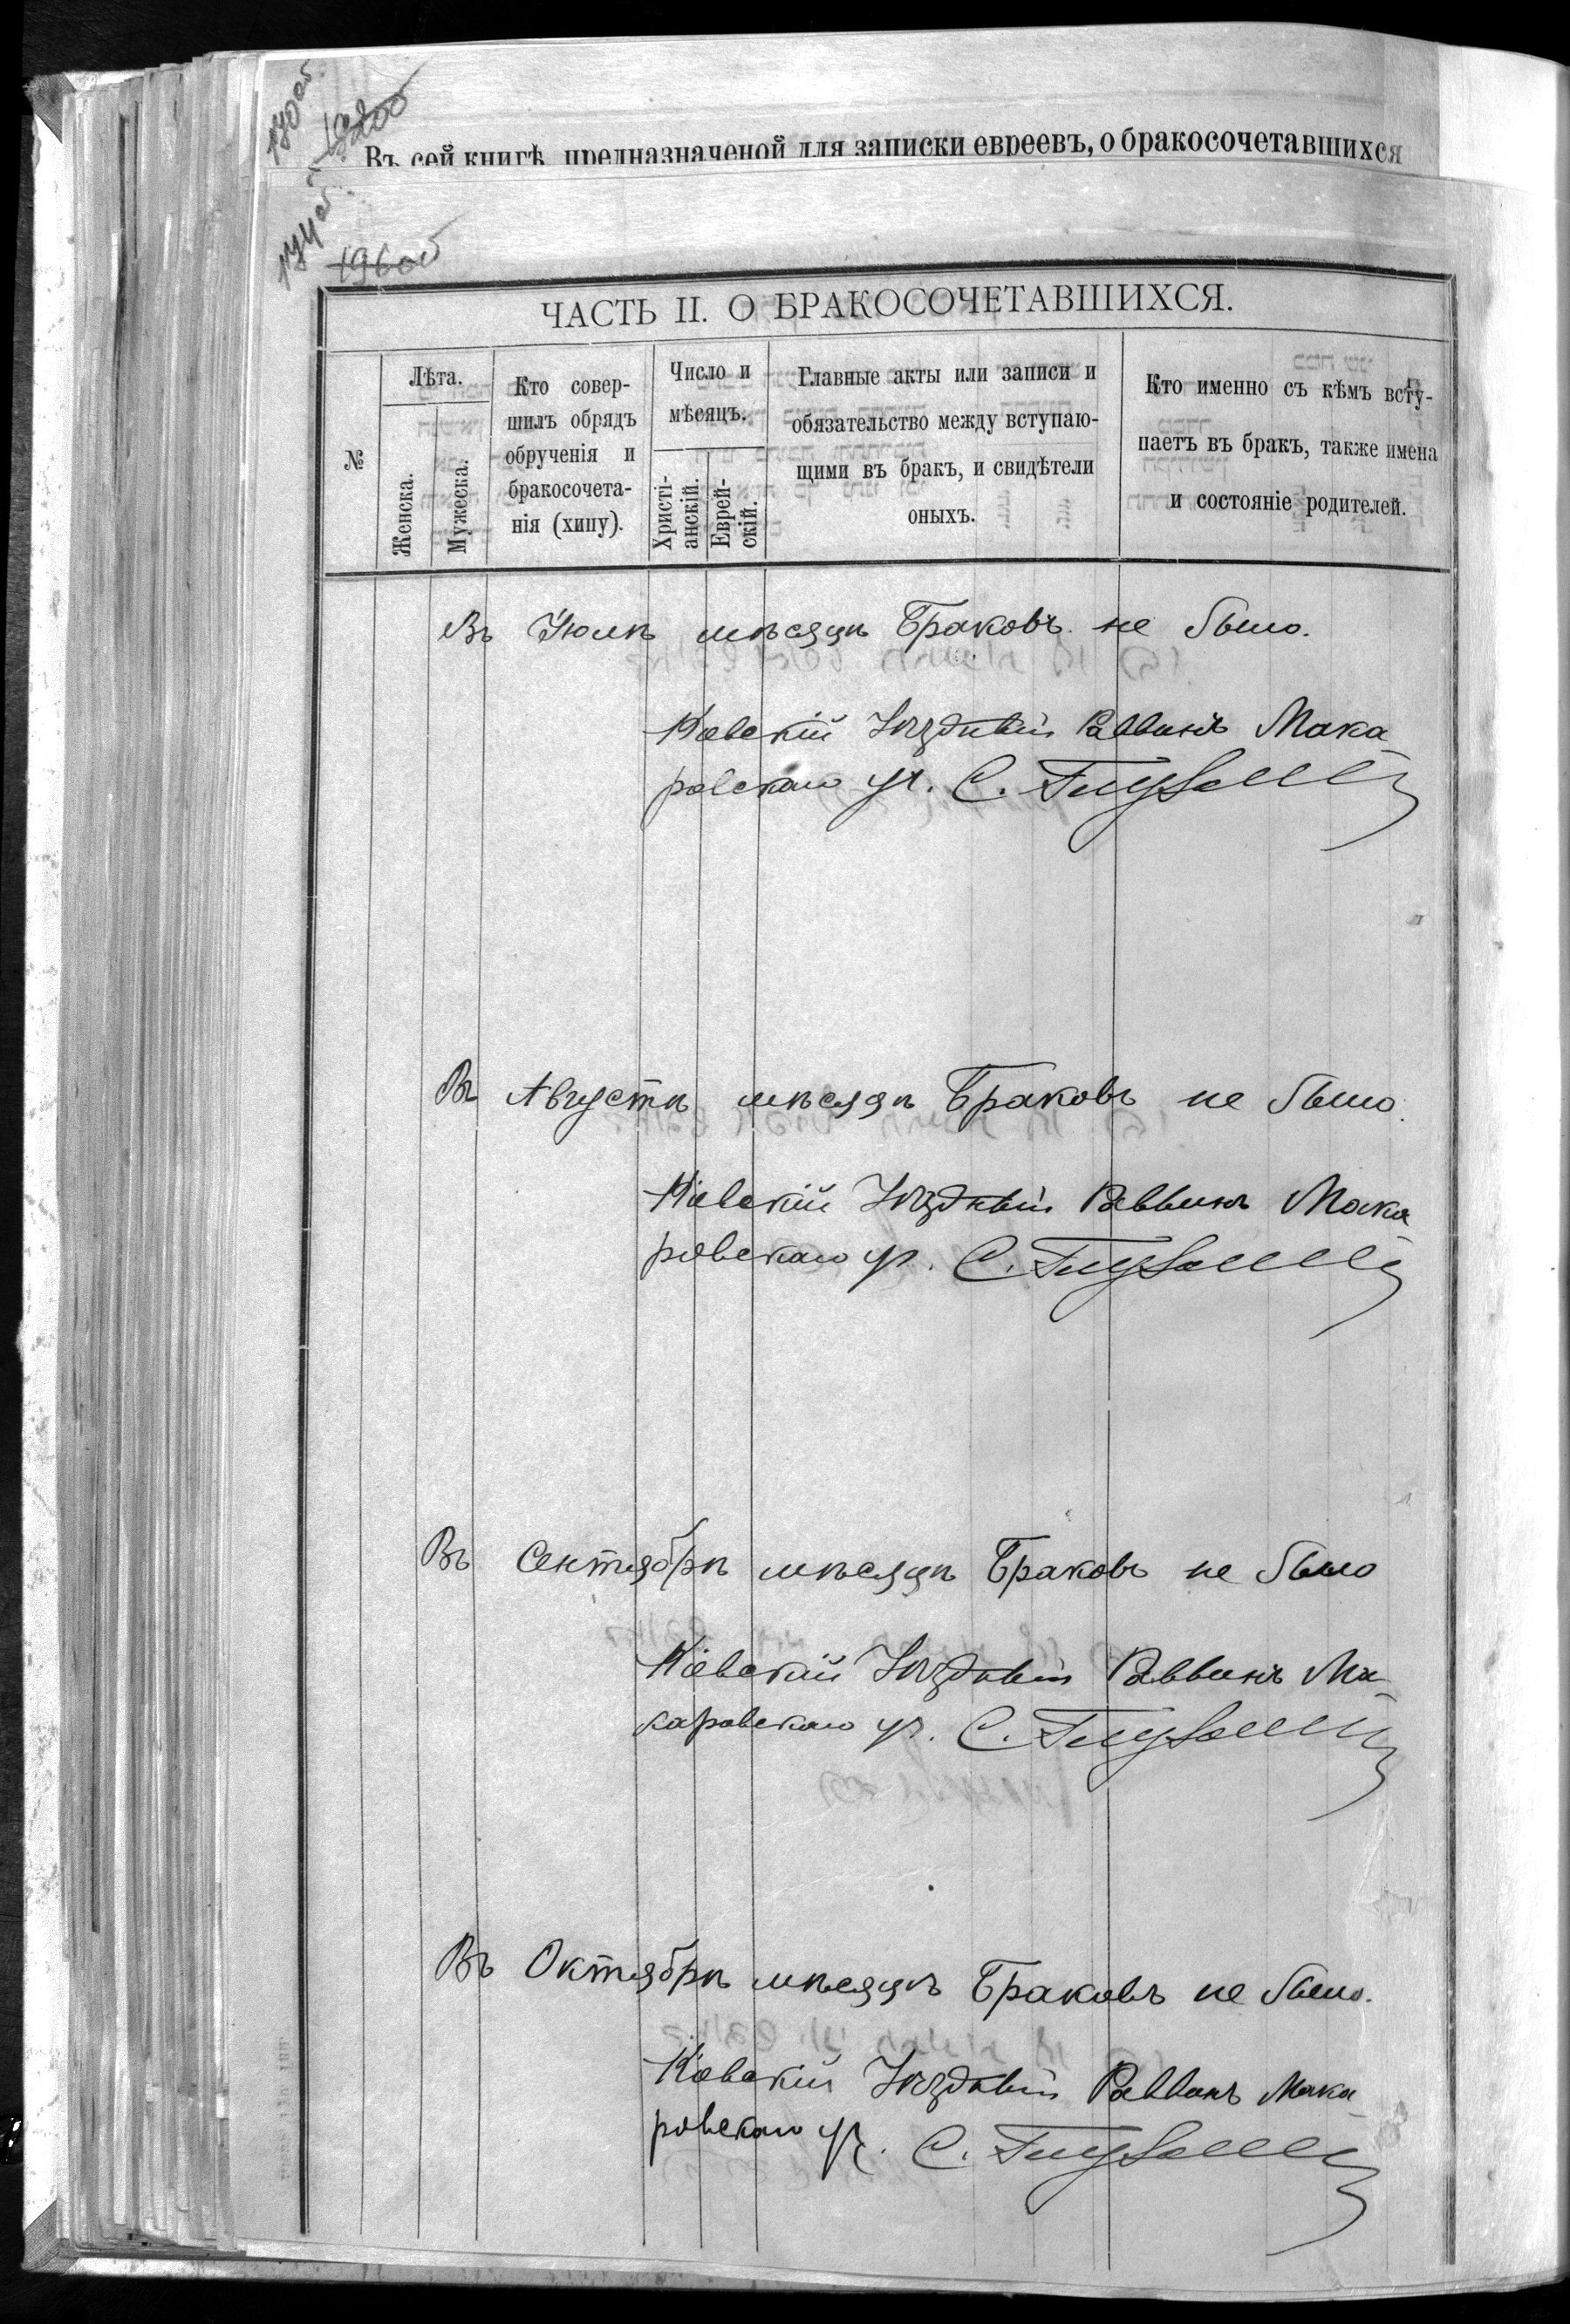 170 об.
Въ сей книгѣ предназначеной для записки евреевъ, о бракосочетавшихся
196 об
ЧАСТЬ II. О БРАКОСОЧЕТАВШИХСЯ.
№
Лѣта.
Женска.
Мужеска.
Кто совер-
шилъ обрядъ
обрученія и
бракосочета-
нія (хипу).
Число и
мѣсяцъ.
Христі-
анскій.
Еврей-
скій.
Главные акты или записи и
обязательство между вступаю-
щими въ бракъ, и свидѣтели
оныхъ.
Кто именно съ кѣмъ всту-
паетъ въ бракъ, также имена
и состояніе родителей.
Въ Іюлѣ мѣсяцѣ Браковъ не было.
Кіевскій Уѣздный Раввинъ Мака
ровскаго уч. С.
Въ Августѣ мѣсяцѣ Браковъ не было.
Кіевскій Уѣздный Раввинъ Мака
ровскаго уч. С.
Въ Сентябрѣ мѣсяцѣ Браковъ не было
Кіевскій Уѣздный Раввинъ Ма-
каровскаго уч. С.
Въ Октябрѣ мѣсяцѣ Браковъ не было.
Кіевскій Уѣздный Раввинъ Мака
ровскаго уч. С.